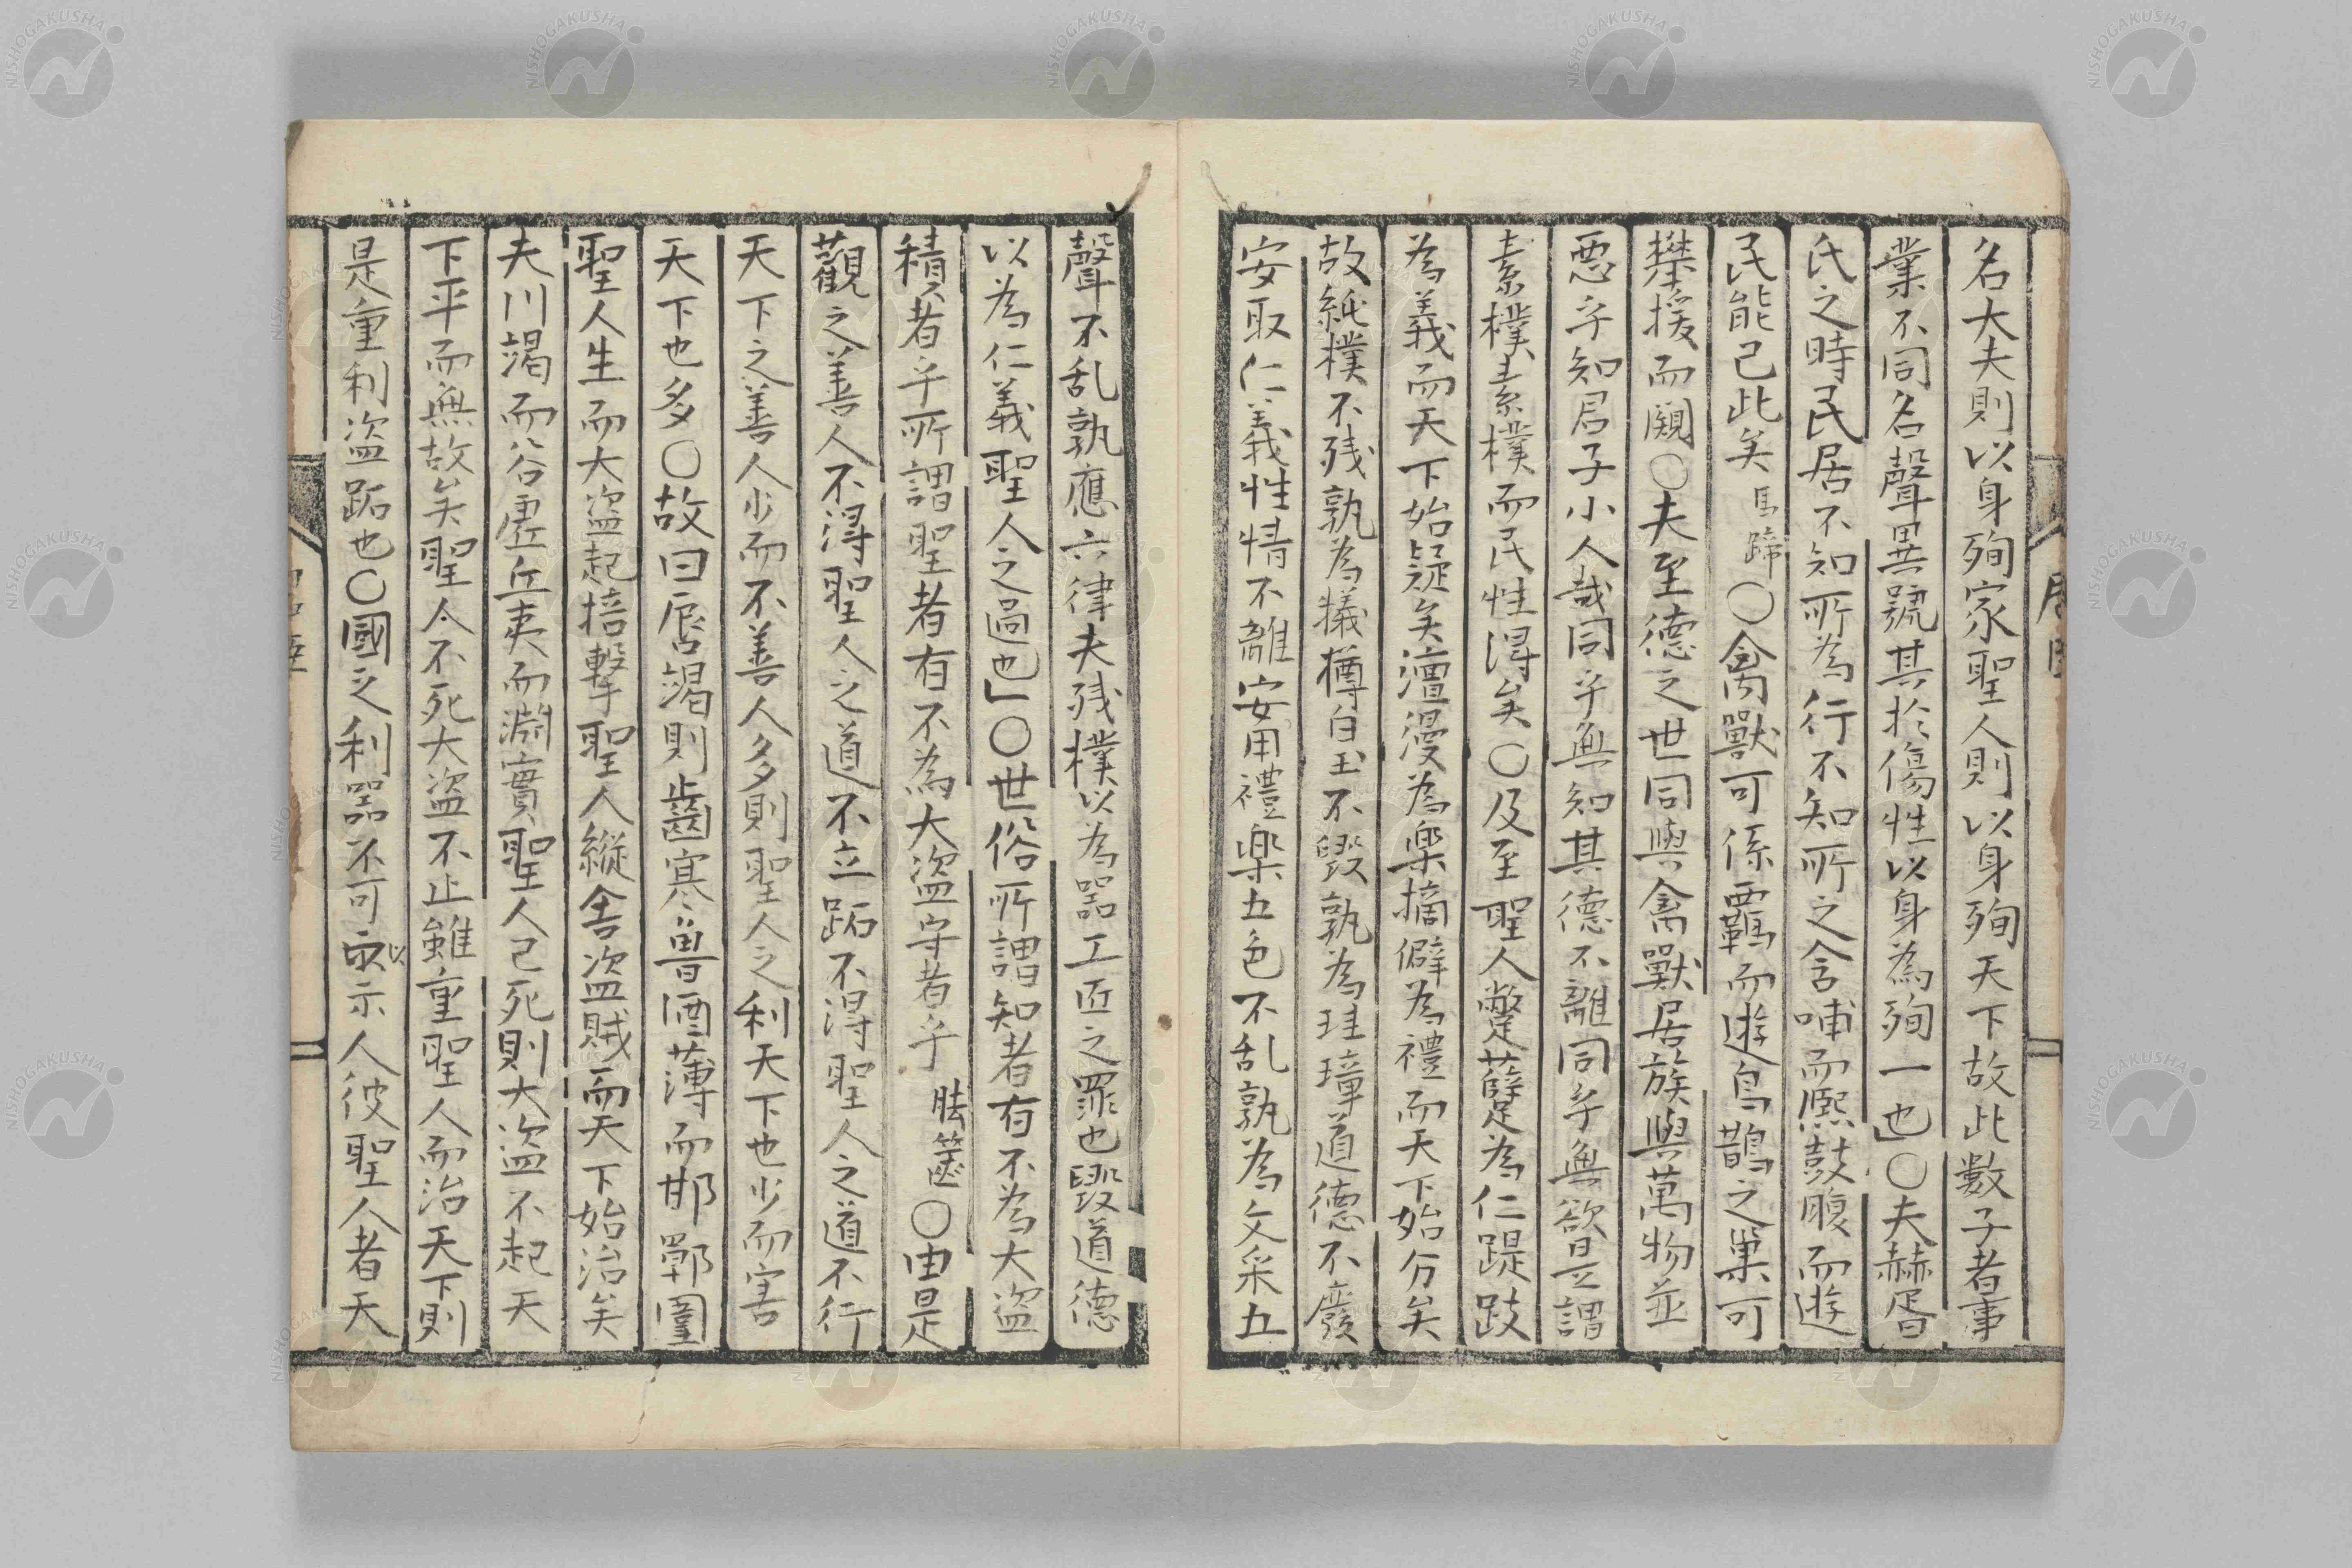 名大夫則以身殉家聖人則以身殉天下故此数子者事
業不同名聲異號其於傷性以身為殉一也」○夫赫胥
氏之時民居不知所為行不知所之含哺而熈鼓腹而遊
民能已此矣馬蹄○禽獸可係羈而遊鳥鵲之巢可
攀援而闚○夫至德之世同與禽獸居族與萬物並
悪乎知君子小人哉同乎無知其德不離同乎無欲是謂
素樸素樸而民性得矣○及至聖人蹩躠為仁踶跂
為義而天下始疑矣澶漫為楽摘僻為禮而天下始分矣
故純樸不残孰為犠樽白玉不毀孰為珪璋道德不廢
安取仁義性情不離安用禮楽五色不乱孰為文采五
聲不乱孰應六律夫残樸以為器工匠之罪也毀道德
以為仁義聖人之過也」○世俗所謂知者有不為大盗
積者乎所謂聖者有不為大盗守者乎胠篋○由是
觀之善人不得聖人之道不立跖不得聖人之道不行
天下之善人少而不善人多則聖人之利天下也少而害
天下也多○故曰唇竭則齒寒魯酒薄而邯鄲圍
聖人生而大盗起掊撃聖人縦舎盗賊而天下始治矣
夫川竭而谷虚丘夷而淵實聖人已死則大盗不起天
下平而無故矣聖人不死大盗不止雖重聖人而治天下則
是重利盗跖也○國之利器不可以示人彼聖人者天
NISHOGAKUSHA
NISHOGAKUSHA
NISHOGAKUSHA
NISHOGAKUSHA
NISHOGAKUSHA
NISHOGAKUSHA
NISHOGAKUSHA
NISHOGAKUSHA
NISHOGAKUSHA